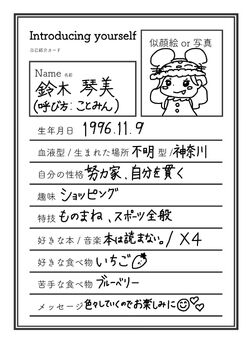 Introducing yourself
自己紹介カード
似顔絵 or 写真
Name 名前
鈴木 琴美
(呼び方：ことみん)
生年月日 1996.11.9
血液型 / 生まれた場所 不明 型 / 神奈川
自分の性格 努力家、自分を貫く
趣味 ショッピング
特技 ものまね、スポーツ全般
好きな本 / 音楽 本は読まない。/ X4
好きな食べ物 いちご
苦手な食べ物 ブルーベリー
メッセージ 色々していくのでお楽しみに